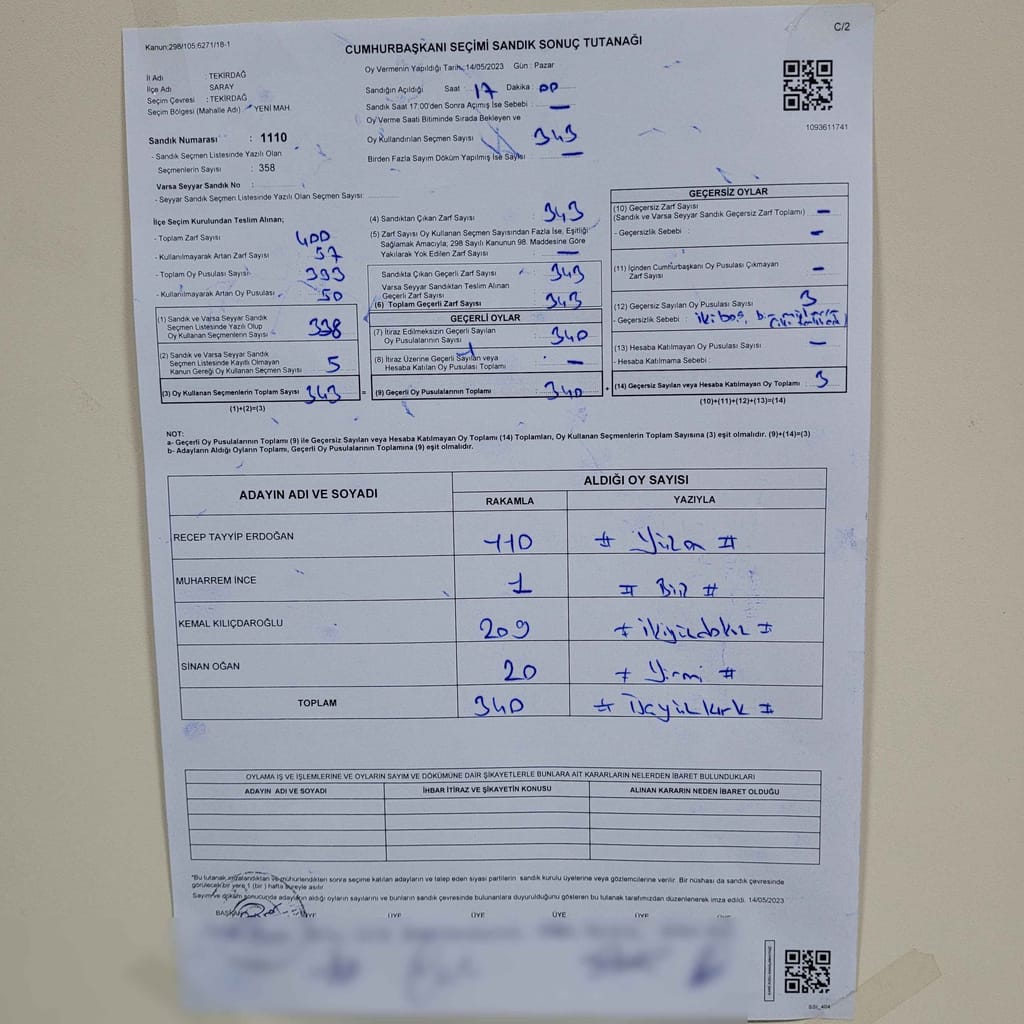 Kanun:298/105;6271/18-1
C/2
CUMHURBAŞKANI SEÇİMİ SANDIK SONUÇ TUTANAĞI
İl Adı : TEKİRDAĞ
İlçe Adı SARAY
Seçim Çevresi : TEKİRDAĞ
Seçim Bölgesi (Mahalle Adı) YENİ MAH.
Sandık Numarası : 1110
- Sandık Seçmen Listesinde Yazılı Olan
Seçmenlerin Sayısı : 358
Varsa Seyyar Sandık No :
- Seyyar Sandık Seçmen Listesinde Yazılı Olan Seçmen Sayısı:
Oy Vermenin Yapıldığı Tarih: 14/05/2023 Gün : Pazar
Sandığın Açıldığı Saat : 17 Dakika : 00
Sandık Saat 17:00'den Sonra Açılmış İse Sebebi : —
Oy Verme Saati Bitiminde Sırada Bekleyen ve
Oy Kullandırılan Seçmen Sayısı 343
Birden Fazla Sayım Döküm Yapılmış İse Sayısı —
1093611741
İlçe Seçim Kurulundan Teslim Alınan;
- Toplam Zarf Sayısı 400
- Kullanılmayarak Artan Zarf Sayısı 57
- Toplam Oy Pusulası Sayısı 393
- Kullanılmayarak Artan Oy Pusulası 50
(1) Sandık ve Varsa Seyyar Sandık
Seçmen Listesinde Yazılı Olup
Oy Kullanan Seçmenlerin Sayısı 338
(2) Sandık ve Varsa Seyyar Sandık
Seçmen Listesinde Kayıtlı Olmayan
Kanun Gereği Oy Kullanan Seçmen Sayısı 5
(3) Oy Kullanan Seçmenlerin Toplam Sayısı 343
(1)+(2)=(3)
(4) Sandıktan Çıkan Zarf Sayısı 343
(5) Zarf Sayısı Oy Kullanan Seçmen Sayısından Fazla İse, Eşitliği
Sağlamak Amacıyla; 298 Sayılı Kanunun 98. Maddesine Göre
Yakılarak Yok Edilen Zarf Sayısı —
Sandıkta Çıkan Geçerli Zarf Sayısı 343
Varsa Seyyar Sandıktan Teslim Alınan
Geçerli Zarf Sayısı
(6) Toplam Geçerli Zarf Sayısı 343
GEÇERLİ OYLAR
(7) İtiraz Edilmeksizin Geçerli Sayılan
Oy Pusulalarının Sayısı 340
(8) İtiraz Üzerine Geçerli Sayılan veya
Hesaba Katılan Oy Pusulası Toplamı —
= (9) Geçerli Oy Pusulalarının Toplamı 340
GEÇERSİZ OYLAR
(10) Geçersiz Zarf Sayısı
(Sandık ve Varsa Seyyar Sandık Geçersiz Zarf Toplamı) —
- Geçersizlik Sebebi : —
(11) İçinden Cumhurbaşkanı Oy Pusulası Çıkmayan
Zarf Sayısı —
(12) Geçersiz Sayılan Oy Pusulası Sayısı 3
- Geçersizlik Sebebi : iki boş,
(13) Hesaba Katılmayan Oy Pusulası Sayısı —
- Hesaba Katılmama Sebebi :
+ (14) Geçersiz Sayılan veya Hesaba Katılmayan Oy Toplamı 3
(10)+(11)+(12)+(13)=(14)
NOT:
a- Geçerli Oy Pusulalarının Toplamı (9) ile Geçersiz Sayılan veya Hesaba Katılmayan Oy Toplamı (14) Toplamları, Oy Kullanan Seçmenlerin Toplam Sayısına (3) eşit olmalıdır. (9)+(14)=(3)
b- Adayların Aldığı Oyların Toplamı, Geçerli Oy Pusulalarının Toplamına (9) eşit olmalıdır.
ADAYIN ADI VE SOYADI ALDIĞI OY SAYISI
RAKAMLA YAZIYLA
RECEP TAYYİP ERDOĞAN 110 # Yüzon #
MUHARREM İNCE 1 # Bir #
KEMAL KILIÇDAROĞLU 209 # ikiyüzdokuz #
SİNAN OĞAN 20 # Yirmi #
TOPLAM 340 # Üçyüzkırk #
OYLAMA İŞ VE İŞLEMLERİNE VE OYLARIN SAYIM VE DÖKÜMÜNE DAİR ŞİKAYETLERLE BUNLARA AİT KARARLARIN NELERDEN İBARET BULUNDUKLARI
ADAYIN ADI VE SOYADI İHBAR İTİRAZ VE ŞİKAYETİN KONUSU ALINAN KARARIN NEDEN İBARET OLDUĞU
"Bu tutanak imzalandıktan ve mühürlendikten sonra seçime katılan adayların ve talep eden siyasi partilerin sandık kurulu üyelerine veya gözlemcilerine verilir. Bir nüshası da sandık çevresinde
görülecek bir yere 1 (bir) hafta süreyle asılır.
Sayım ve döküm sonucunda adayların aldığı oyların sayılarını ve bunların sandık çevresinde bulunanlara duyurulduğunu gösteren bu tutanak tarafımızdan düzenlenerek imza edildi. 14/05/2023
BAŞKAN ÜYE ÜYE ÜYE ÜYE ÜYE ÜYE